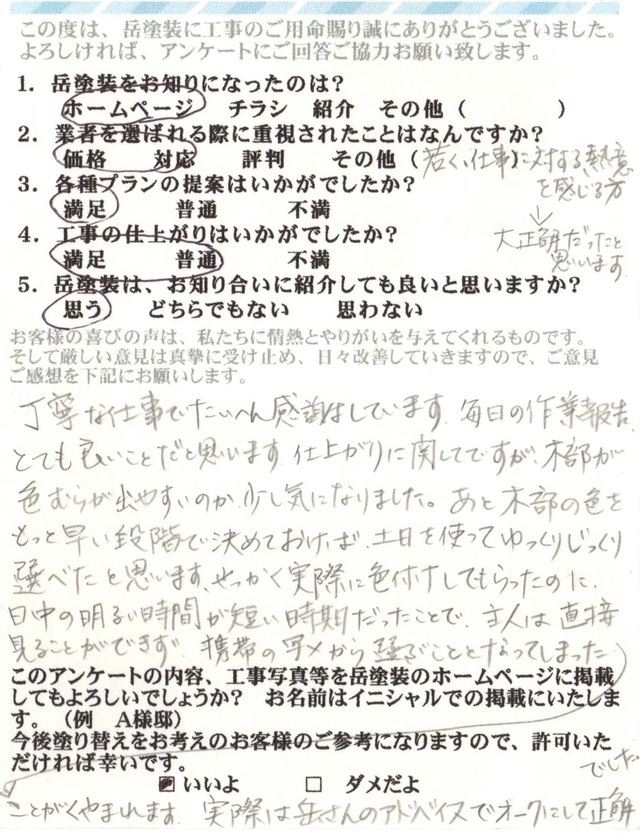 この度は、岳塗装に工事のご用命賜り誠にありがとうございました。
よろしければ、アンケートにご回答ご協力お願い致します。
1．岳塗装をお知りになったのは？
ホームページ　チラシ　紹介　その他（　　　　）
2．業者を選ばれる際に重視されたことはなんですか？
価格　対応　評判　その他（若く、仕事に対する熱意
を感じる方
↓
大正解だったと
思います
3．各種プランの提案はいかがでしたか？
満足　普通　不満
4．工事の仕上がりはいかがでしたか？
満足　普通　不満
5．岳塗装は、お知り合いに紹介しても良いと思いますか？
思う　どちらでもない　思わない
お客様の喜びの声は、私たちに情熱とやりがいを与えてくれるものです。
そして厳しい意見は真摯に受け止め、日々改善していきますので、ご意見
ご感想を下記にお願いします。
丁寧な仕事でたいへん感謝しています。毎日の作業報告、
とても良いことだと思います。仕上がりに関してですが、木部が
色むらが出やすいのか、少し気になりました。あと木部の色を
もっと早い段階で決めておけば、土日を使ってゆっくりじっくり
選べたと思います。せっかく実際に色付けしてもらったのに、
日中の明るい時間が短い時期だったことで、主人は直接
見ることができず、携帯の写メから選ぶこととなってしまった
このアンケートの内容、工事写真等を岳塗装のホームページに掲載
してもよろしいでしょうか？　お名前はイニシャルでの掲載にいたしま
す。（例　A様邸）
今後塗り替えをお考えのお客様のご参考になりますので、許可いた
だければ幸いです。
☑ いいよ　□ ダメだよ
ことがくやまれます。実際は岳さんのアドバイスでオークにして正解
でした。